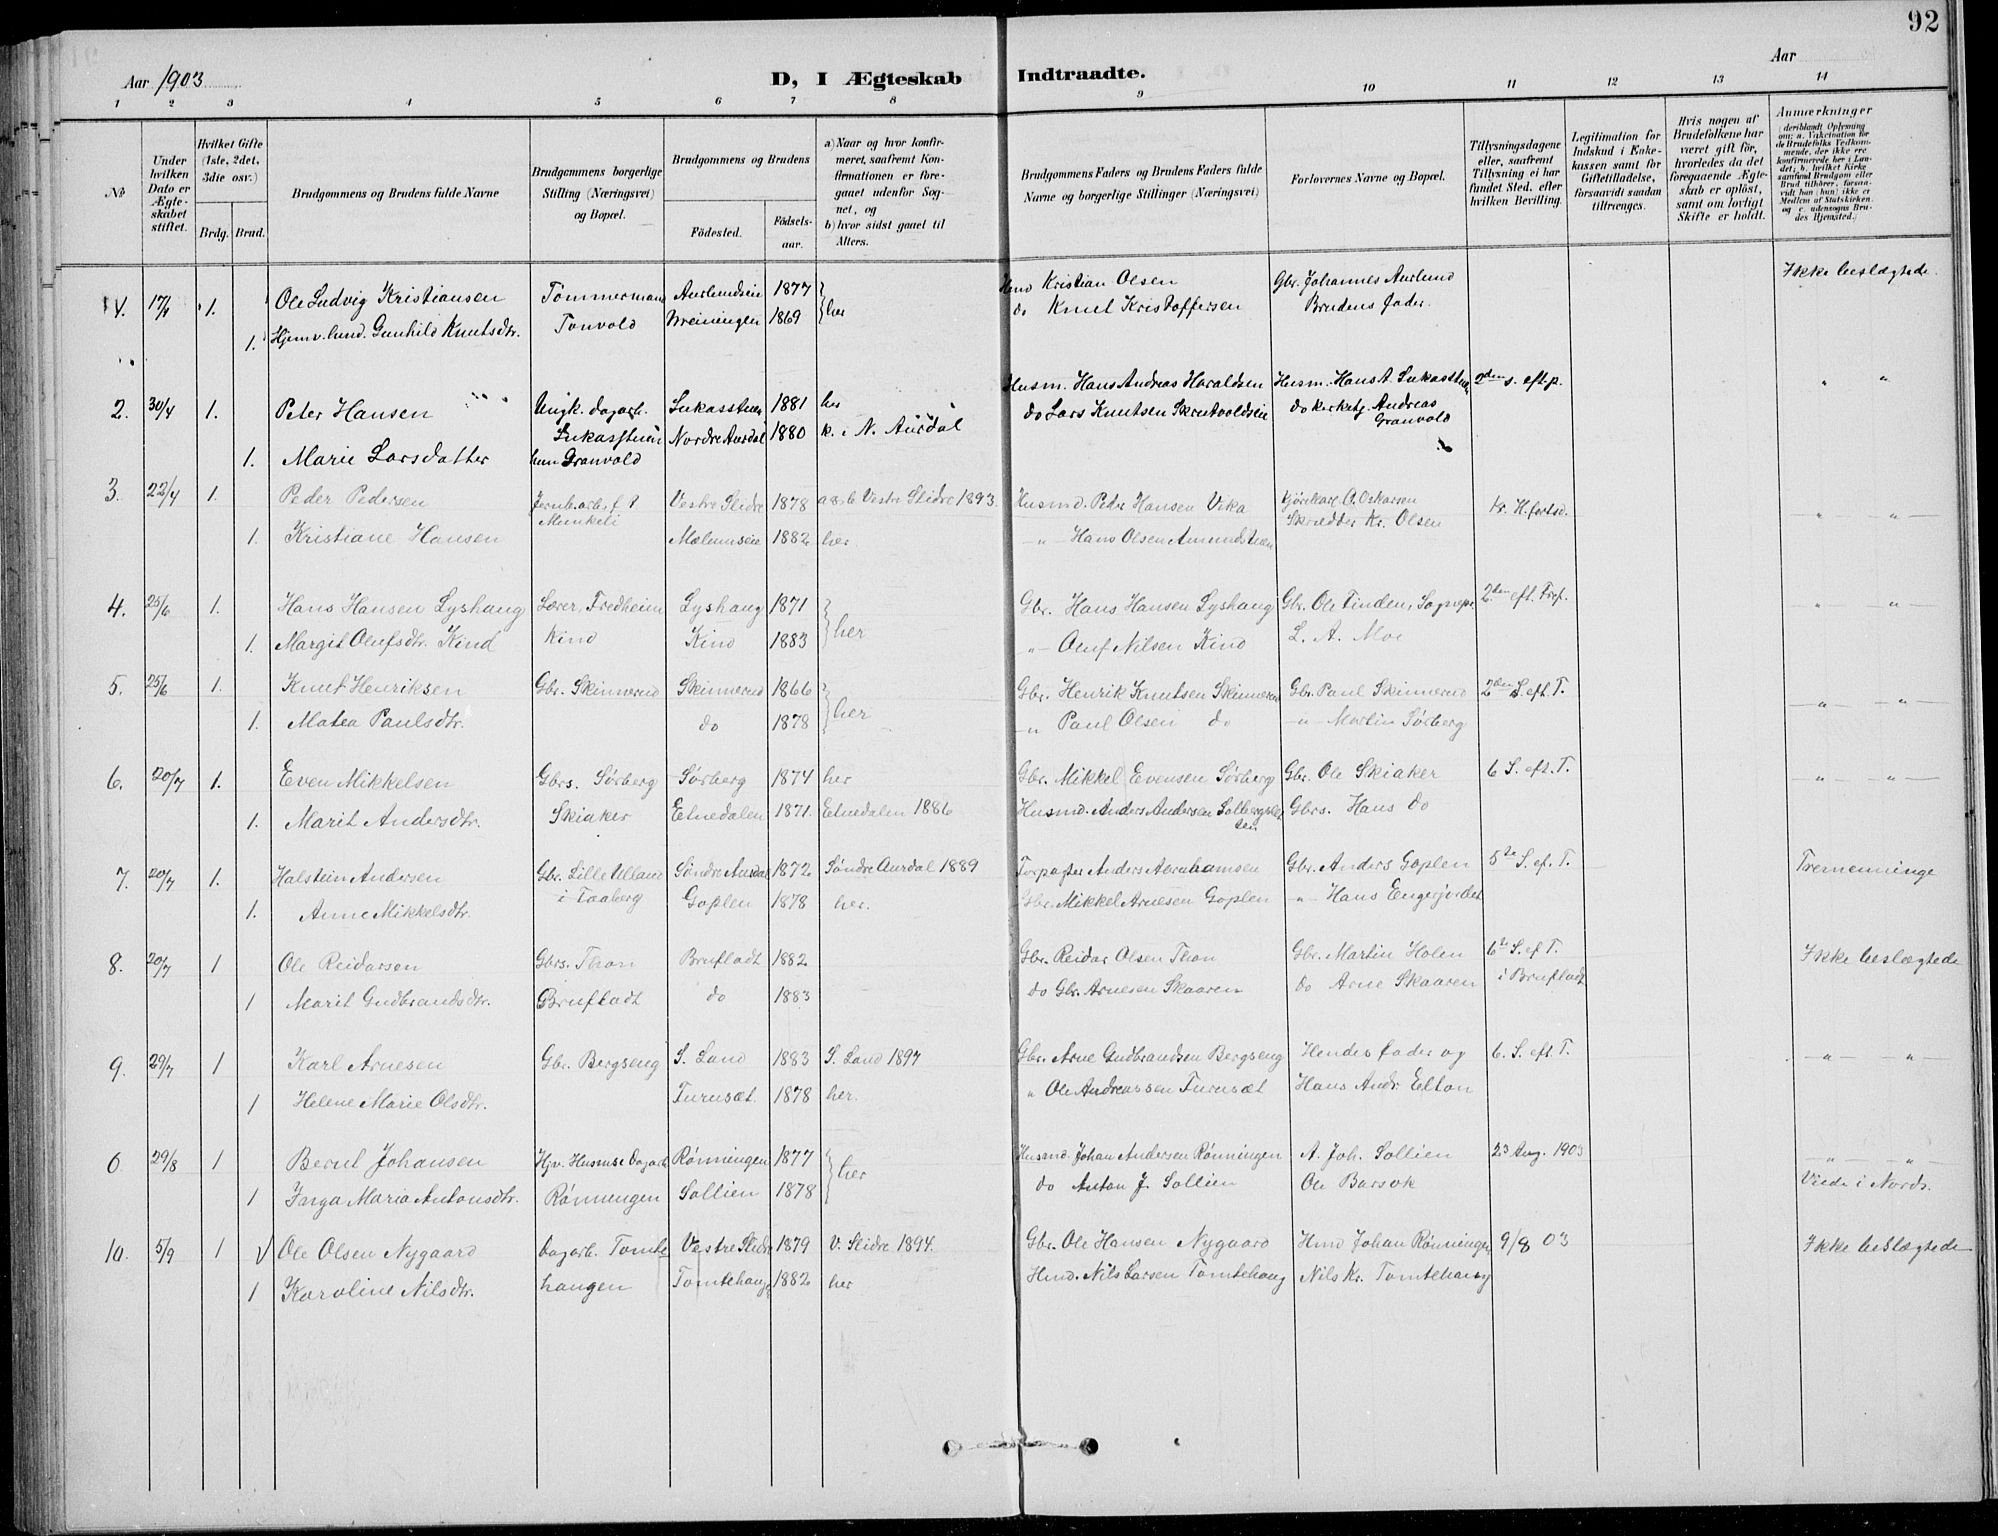 92
Aar 1903
D, I Ægteskab Indtraadte.
Aar
1 2 3 4 5 6 7 8 9 10 11 12 13 14
No
Under hvilken Dato er Ægteskabet stiftet.
Hvilket Gifte (1ste, 2det, 3die osv.)
Brdg. Brud.
Brudgommens og Brudens fulde Navne
Brudgommens borgerlige Stilling (Næringsvei) og Bopæl.
Brudgommens og Brudens
Födested. Födselsaar.
a) Naar og hvor konfirmeret, saafremt Konfirmationen er foregaaet udenfor Sognet, og
b) hvor sidst gaaet til Alters.
Brudgommens Faders og Brudens Faders fulde Navne og borgerlige Stillinger (Næringsvei)
Forlovernes Navne og Bopæl.
Tillysningsdagene eller, saafremt Tillysning ei har fundet Sted, efter hvilken Bevilling.
Legitimation for Indskud i Enkekassen samt for Giftetilladelse, forsaavidt saadan tiltrænges.
Hvis nogen af Brudefolkene har været gift för, hvorledes da det foregaaende Ægteskab er oplöst, samt om lovligt Skifte er holdt.
Anmærkninger
(deriblandt Oplysning om: a. Vakcination for de Brudefolks Vedkommende, der ikke ere konfirmerede her i Landet; b. hvilket Kirkesamfund Brudgom eller Brud tilhörer, forsaavidt han (hun) ikke er Medlem af Statskirken og c. udensogns Brudes Hjemsted.)
1. 17/4 1. Ole Ludvig Kristiansen Tømmermand Aurlundseie 1877 her Hmd Kristian Olsen Gbr. Johannes Aurlund Ikke beslægtede
1. Hjemv. hund. Gunhild Knutsdtr. Tonvold Breiningen 1869 do Knut Kristoffersen Brudens fader.
2. 30/4 1. Peter Hansen Ungk. dagarb. Lukasstuen 1881 her Husm. Hans Andreas Haraldsen Husm. Hans A. Lukasstuen 2den s. eft. p. " "
Lukasstuen Nordre Aurdal 1880 k. i N. Aurdal do Lars Knutsen Skrutvoldseie do kirketj. Andreas Granvold
1. Marie Larsdatter hun Granvold
3. 22/4 1. Peder Pedersen Jernb.arb. f. P. Vestre Slidre 1878 a & b Vestre Slidre 1893. Husmd. Peder Hansen Vika Kjørekarl O. Oskarsen kr. H. fortsd. " "
1. Kristiane Hansen Munkeli Mælumseie 1882 her. " Hans Olsen Amundstuen Skrædder Kr. Olsen
4. 25/6 1. Hans Hansen Lyshaug Lærer, Fredheim Lyshaug 1871 her Gbr. Hans Hansen Lyshaug Gbr. Ole Tinden, Sognepr. 2den eft. Tref. " "
1. Margit Olufsdtr. Kind Kind Kind 1883 " Oluf Nilsen Kind L. A. Moe
5. 25/6 1. Knut Henriksen Gbr. Skinnerud Skinnerud 1866 her Gbr. Henrik Knutsen Skinnerud Gbr. Paul Skinnerud 2den S. eft. T.
1. Matea Paulsdtr. do 1878 " Paul Olsen do " Martin Sørberg " "
6. 20/7 1. Even Mikkelsen Gbrs. Sørberg Sørberg 1874 her Gbr. Mikkel Evensen Sørberg Gbr. Ole Skiaker 6 S. eft. T. " "
1. Marit Andersdtr. Skiaker Etnedalen 1871. Etnedalen 1886 Husmd. Anders Andersen Solbergslet ten. Gbrs. Hans do
7. 20/7 1. Halstein Andersen Gbr. Lille Ulland Søndre Aurdal 1872 Søndre Aurdal 1889 Forpagter Anders Abrahamsen Gbr. Anders Goplen 5te S. ef. T. Tremenninge
1. Anne Mikkelsdtr. i Faaberg Goplen 1878 her. Gbr. Mikkel Arnesen Goplen " Hans Engerjordet
8. 20/7 1 Ole Reidarsen Gbrs. Thon Brufladt 1882 Gbr. Reidar Olsen Thon Gbr. Martin Holen 6te S. ef T. Ikke beslægtede
1 Marit Gudbrandsdtr. Brufladt do 1883 do Gbr. Arnesen Skaaren do Arne Skaaren i Brufladt
9. 29/7 1 Karl Arnesen Gbr. Bergseng S. Land 1883 S. Land 1897 Gbr. Arne Gudbrandsen Bergseng Hendes fader og 6. S. eft. T. " "
1 Helene Marie Olsdtr. Turusæt. 1878 her. " Ole Andreassen Turusæt Hans Andr. Elton
6 29/8 1 Bernt Johansen Hjv. Husmsø. Dagarb. Rønningen 1877 her Husmd. Johan Andersen Rønningen A. Joh. Sollien 23 Aug. 1903 " "
1 Inga Maria Antonsdtr. Rønningen Sollien 1878 do Anton J. Sollien Ole Barsok Viede i Nords.
10. 5/9 1 V Ole Olsen Nygaard Dagarb. Tomte Vestre Slidre 1879 V. Slidre 1894. Gbr. Ole Hansen Nygaard Hmd Johan Rønningen 9/8 03 Ikke beslægtede
1 Karoline Nilsdtr. haugen Tomtehaug 1882 her Hmd. Nils Larsen Tomtehaug Nils Kr. Tomtehaug